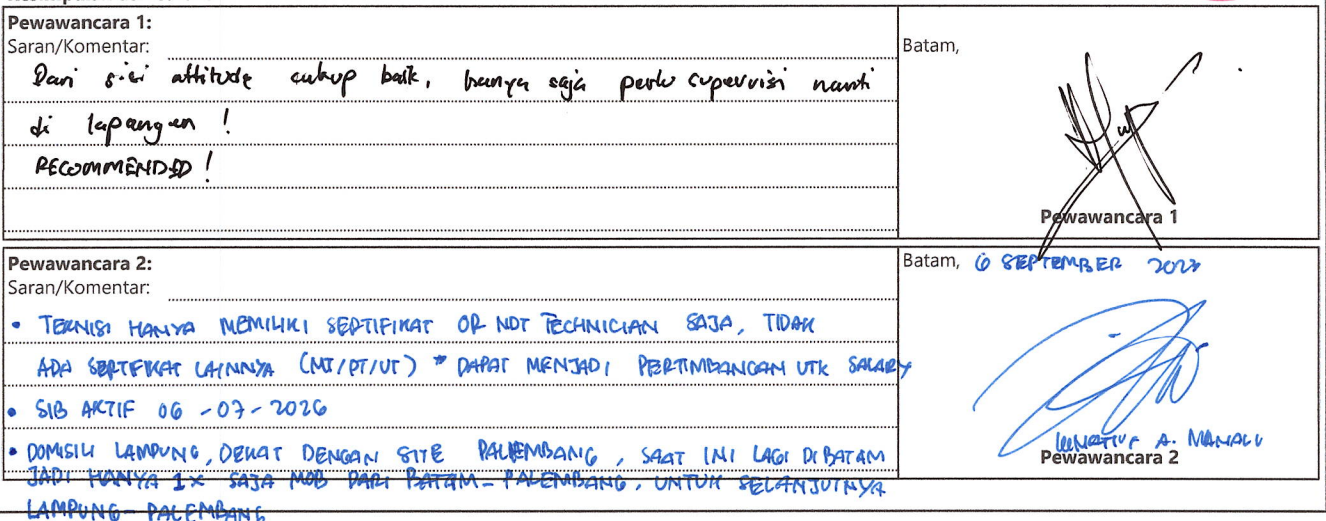 Pewawancara 1:
Saran/Komentar:
Dari sisi attitude cukup baik, hanya saja perlu supervisi nanti
di lapangan !
RECOMMENDED !
Batam,
Pewawancara 1
Pewawancara 2:
Saran/Komentar:
• TEKNISI HANYA MEMILIKI SERTIFIKAT OR NDT TECHNICIAN SAJA, TIDAK
ADA SERTIFIKAT LAINNYA (MT/PT/UT) * DAPAT MENJADI PERTIMBANGAN UTK SALARY
• SIB AKTIF 06-07-2026
• DOMISILI LAMPUNG, DEKAT DENGAN SITE PALEMBANG, SAAT INI LAGI DI BATAM
JADI HANYA 1x SAJA MOB DARI BATAM - PALEMBANG, UNTUK SELANJUTNYA
LAMPUNG - PALEMBANG
Batam, 6 SEPTEMBER
A. MANALU
Pewawancara 2